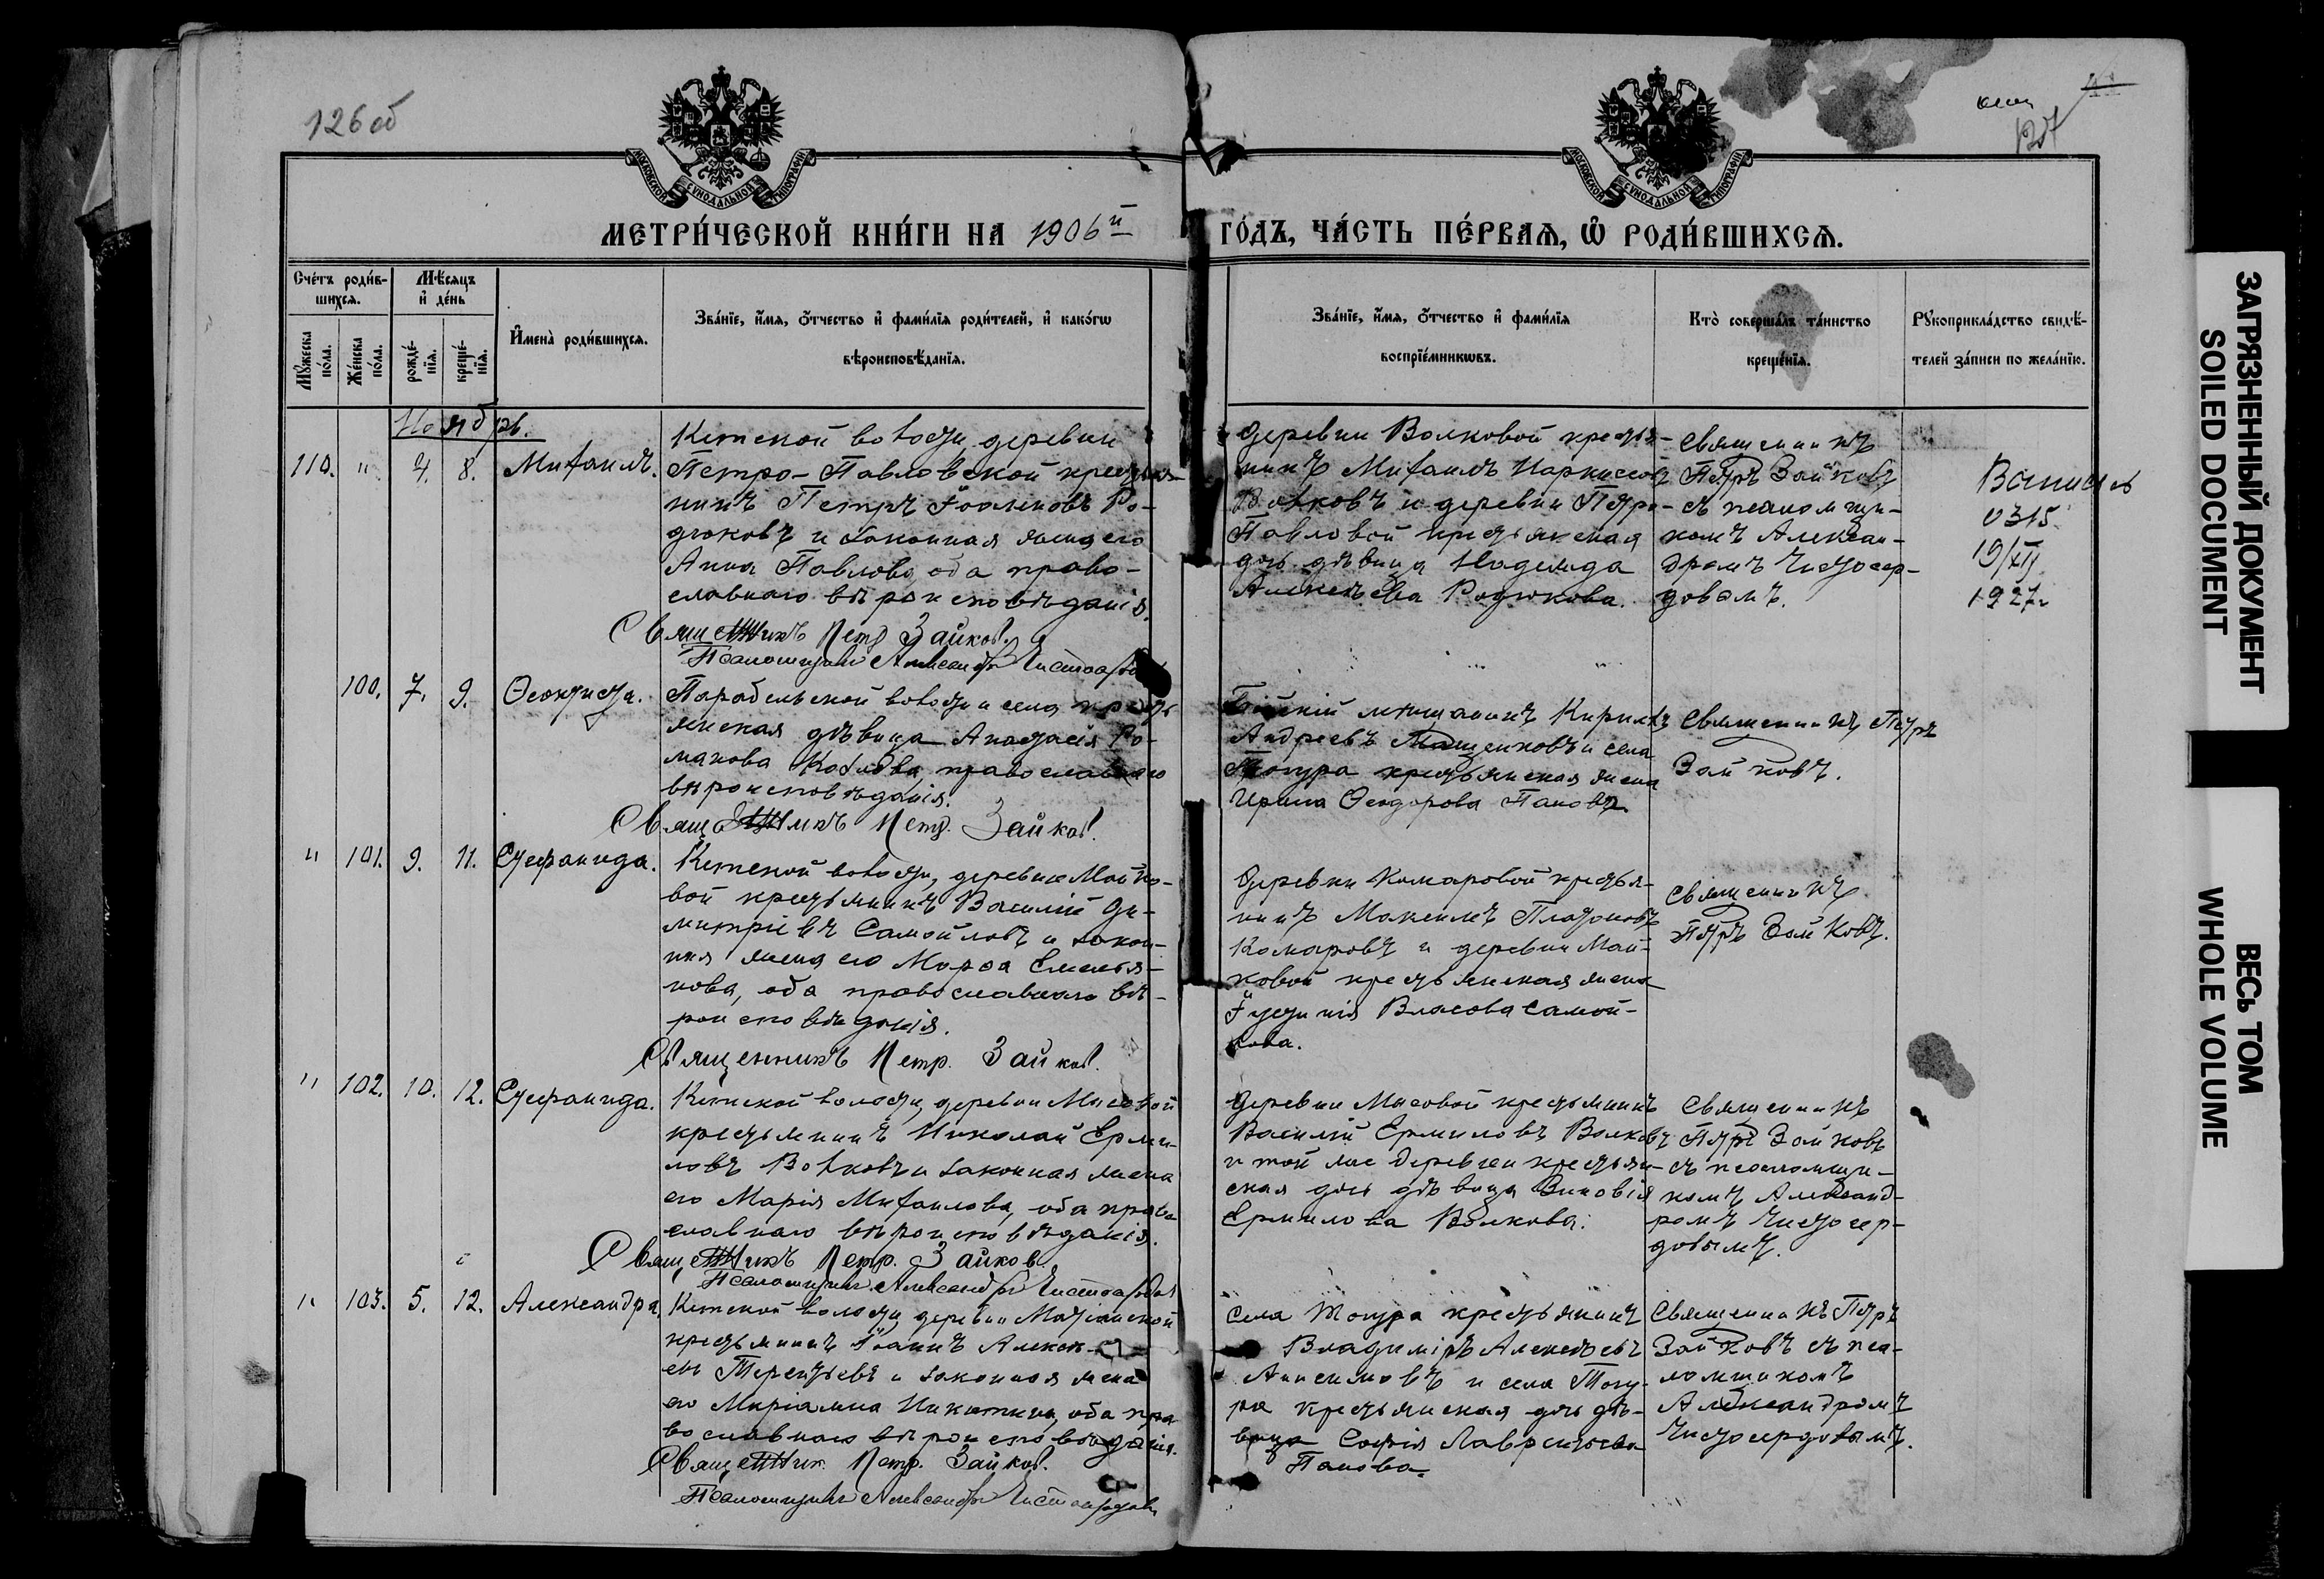 126 об
127
МОСКОВСКОЙ СѴНОДАЛЬНОЙ ТИПОГРАФІИ
МОСКОВСКОЙ СѴНОДАЛЬНОЙ ТИПОГРАФІИ
МЕТРИ́ЧЕСКОЙ КНИ́ГИ НА 1906й ГО́ДЪ, ЧА́СТЬ ПЕ́РВАЯ, Ѡ РОДИ́ВШИХСЯ.
Сче́тъ роди́в-
шихся.
Му́жеска по́ла.
Же́нска по́ла.
Мѣ́сяцъ
и де́нь
рожде́-
нія.
креще́-
нія.
Имена̀ роди́вшихся.
Зва́нїе, и́мя, о́тчество и фами́лїя роди́телей, и како́гѡ
вѣроисповѣ́данїя.
Зва́нїе, и́мя, о́тчество и фами́лїя
воспрїе́мникѡвъ.
Кто̀ соверша́лъ та́инство
креще́нїя.
Рꙋкоприкла́дство свидѣ́-
телей за́писи по жела́нїю.
Ноябрь.
110. " 4. 8. Михаилъ.
Кетской волости, деревни
Петро-Павловской крестья-
нинъ Петръ Іоакимовъ Ро-
дюковъ и законная жена его
Анна Павлова, оба право-
славнаго вѣроисповѣданія.
Священникъ Петр Зайков.
Псаломщикъ Александръ Чистосердов
деревни Волковой крестья-
нинъ Михаилъ Наркиссовъ
Волковъ и деревни Петро-
Павловой крестьянская
дочь дѣвица Надежда
Алексѣева Родюкова.
Священникъ
Петръ Зайковъ
съ псаломщи-
комъ Алексан-
дромъ Чистосер-
довымъ.
0315
19/XII
1927г
100. 7. 9. Ѳеоктиста.
Парабельской волости и села кресть
янская дѣвица Анастасія Ро-
манова Козлова, православнаго
вѣроисповѣданія.
Священникъ Петр. Зайков.
Бійскій мѣщанинъ Кириллъ
Андреевъ Мащенковъ и села
Тогура крестьянская жена
Ирина Ѳеодорова Панова.
Священникъ Петръ
Зайковъ.
" 101. 9. 11. Стефанида.
Кетской волости, деревни Майко-
вой крестьянинъ Василій Ди-
митріевъ Самойловъ и закон-
ная жена его Марѳа Емелья-
нова, оба православнаго вѣ-
роисповѣданія.
Священникъ Петр. Зайков.
деревни Комаровой крестья-
нинъ Максимъ Платоновъ
Комаровъ и деревни Май-
ковой крестьянская жена
Іустинія Власова Самой-
лова.
Священникъ
Петръ Зайковъ.
" 102. 10. 12. Стефанида.
Кетской волости, деревни Мысовой
крестьянинъ Николай Ерми-
ловъ Волковъ и законная жена
его Марія Михаилова, оба право
славнаго вѣроисповѣданія.
Священникъ Петр. Зайков
Псаломщикъ Александръ Чистосердов
деревни Мысовой крестьянинъ
Василій Ермиловъ Волковъ
и той же деревни крестьян-
ская дочь дѣвица Зиновія
Ермилова Волкова.
Священникъ
Петръ Зайковъ
съ псаломщи-
комъ Александ-
ромъ Чистосер-
довымъ.
" 103. 5. 12. Александра.
Кетской волости, деревни Матіанской
крестьянинъ Іоаннъ Алексѣ-
евъ Терентьевъ и законная жена
его Маріамна Никитина, оба пра
вославнаго вѣроисповѣданія.
Священник Петр. Зайков.
Псаломщикъ Александръ Чистосердовъ
села Тогура крестьянинъ
Владиміръ Алексѣевъ
Анисимовъ и села Тогу-
ра крестьянская дочь дѣ-
вица Софія Лаврентьева
Панова.
Священникъ Петръ
Зайковъ съ пса-
ломщикомъ
Александромъ
Чистосердовымъ.
ЗАГРЯЗНЕННЫЙ ДОКУМЕНТ
SOILED DOCUMENT
ВЕСЬ ТОМ
WHOLE VOLUME